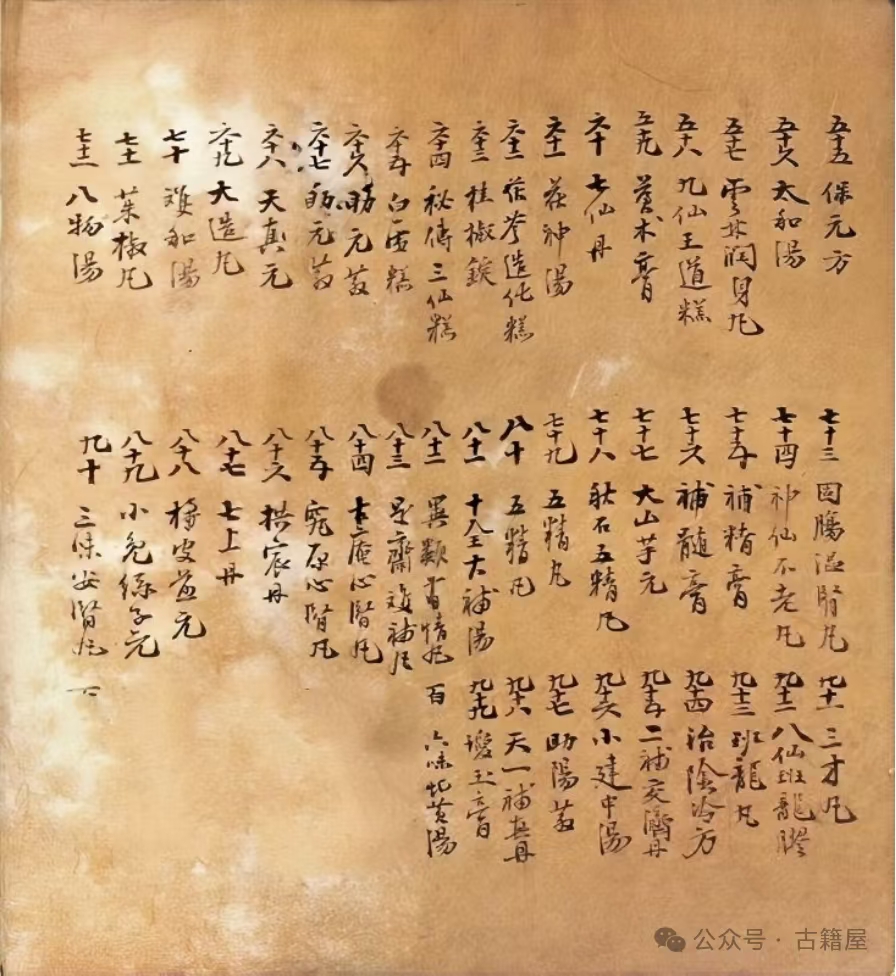 五十五 保元方
五十六 太和湯
五十七 雲林潤身丸
五十八 九仙王道糕
五十九 蒼朮膏
六十 七仙丹
六十一 茯神湯
六十二 造化糕
六十三 桂椒錠
六十四 秘傳三仙糕
六十五 白雪糕
六十六 助元散
六十七 元散
六十八 天真元
六十九 大造丸
七十 雙和湯
七十一 茱椒丸
七十二 八物湯
七十三 固腸湿腎丸
七十四 神仙不老丸
七十五 補精膏
七十六 補髓膏
七十七 大山芋元
七十八 秋石五精丸
七十九 五精丸
八十 五精丸
八十一 十八王大補湯
八十二 異類有情丸
八十三 是齋双補丸
八十四 古庵心腎丸
八十五 究原心腎丸
八十六 拱宸丹
八十七 七上丹
八十八 橘皮煎元
八十九 小兔絲子元
九十 三味安腎丸
九十一 三才丸
九十二 八仙班龍膠
九十三 班龍丸
九十四 治陰冷方
九十五 二補交濟丹
九十六 小建中湯
九十七 助陽散
九十八 天一補真丹
九十九 瓊玉膏
百 六味地黄湯
公众号·古籍屋